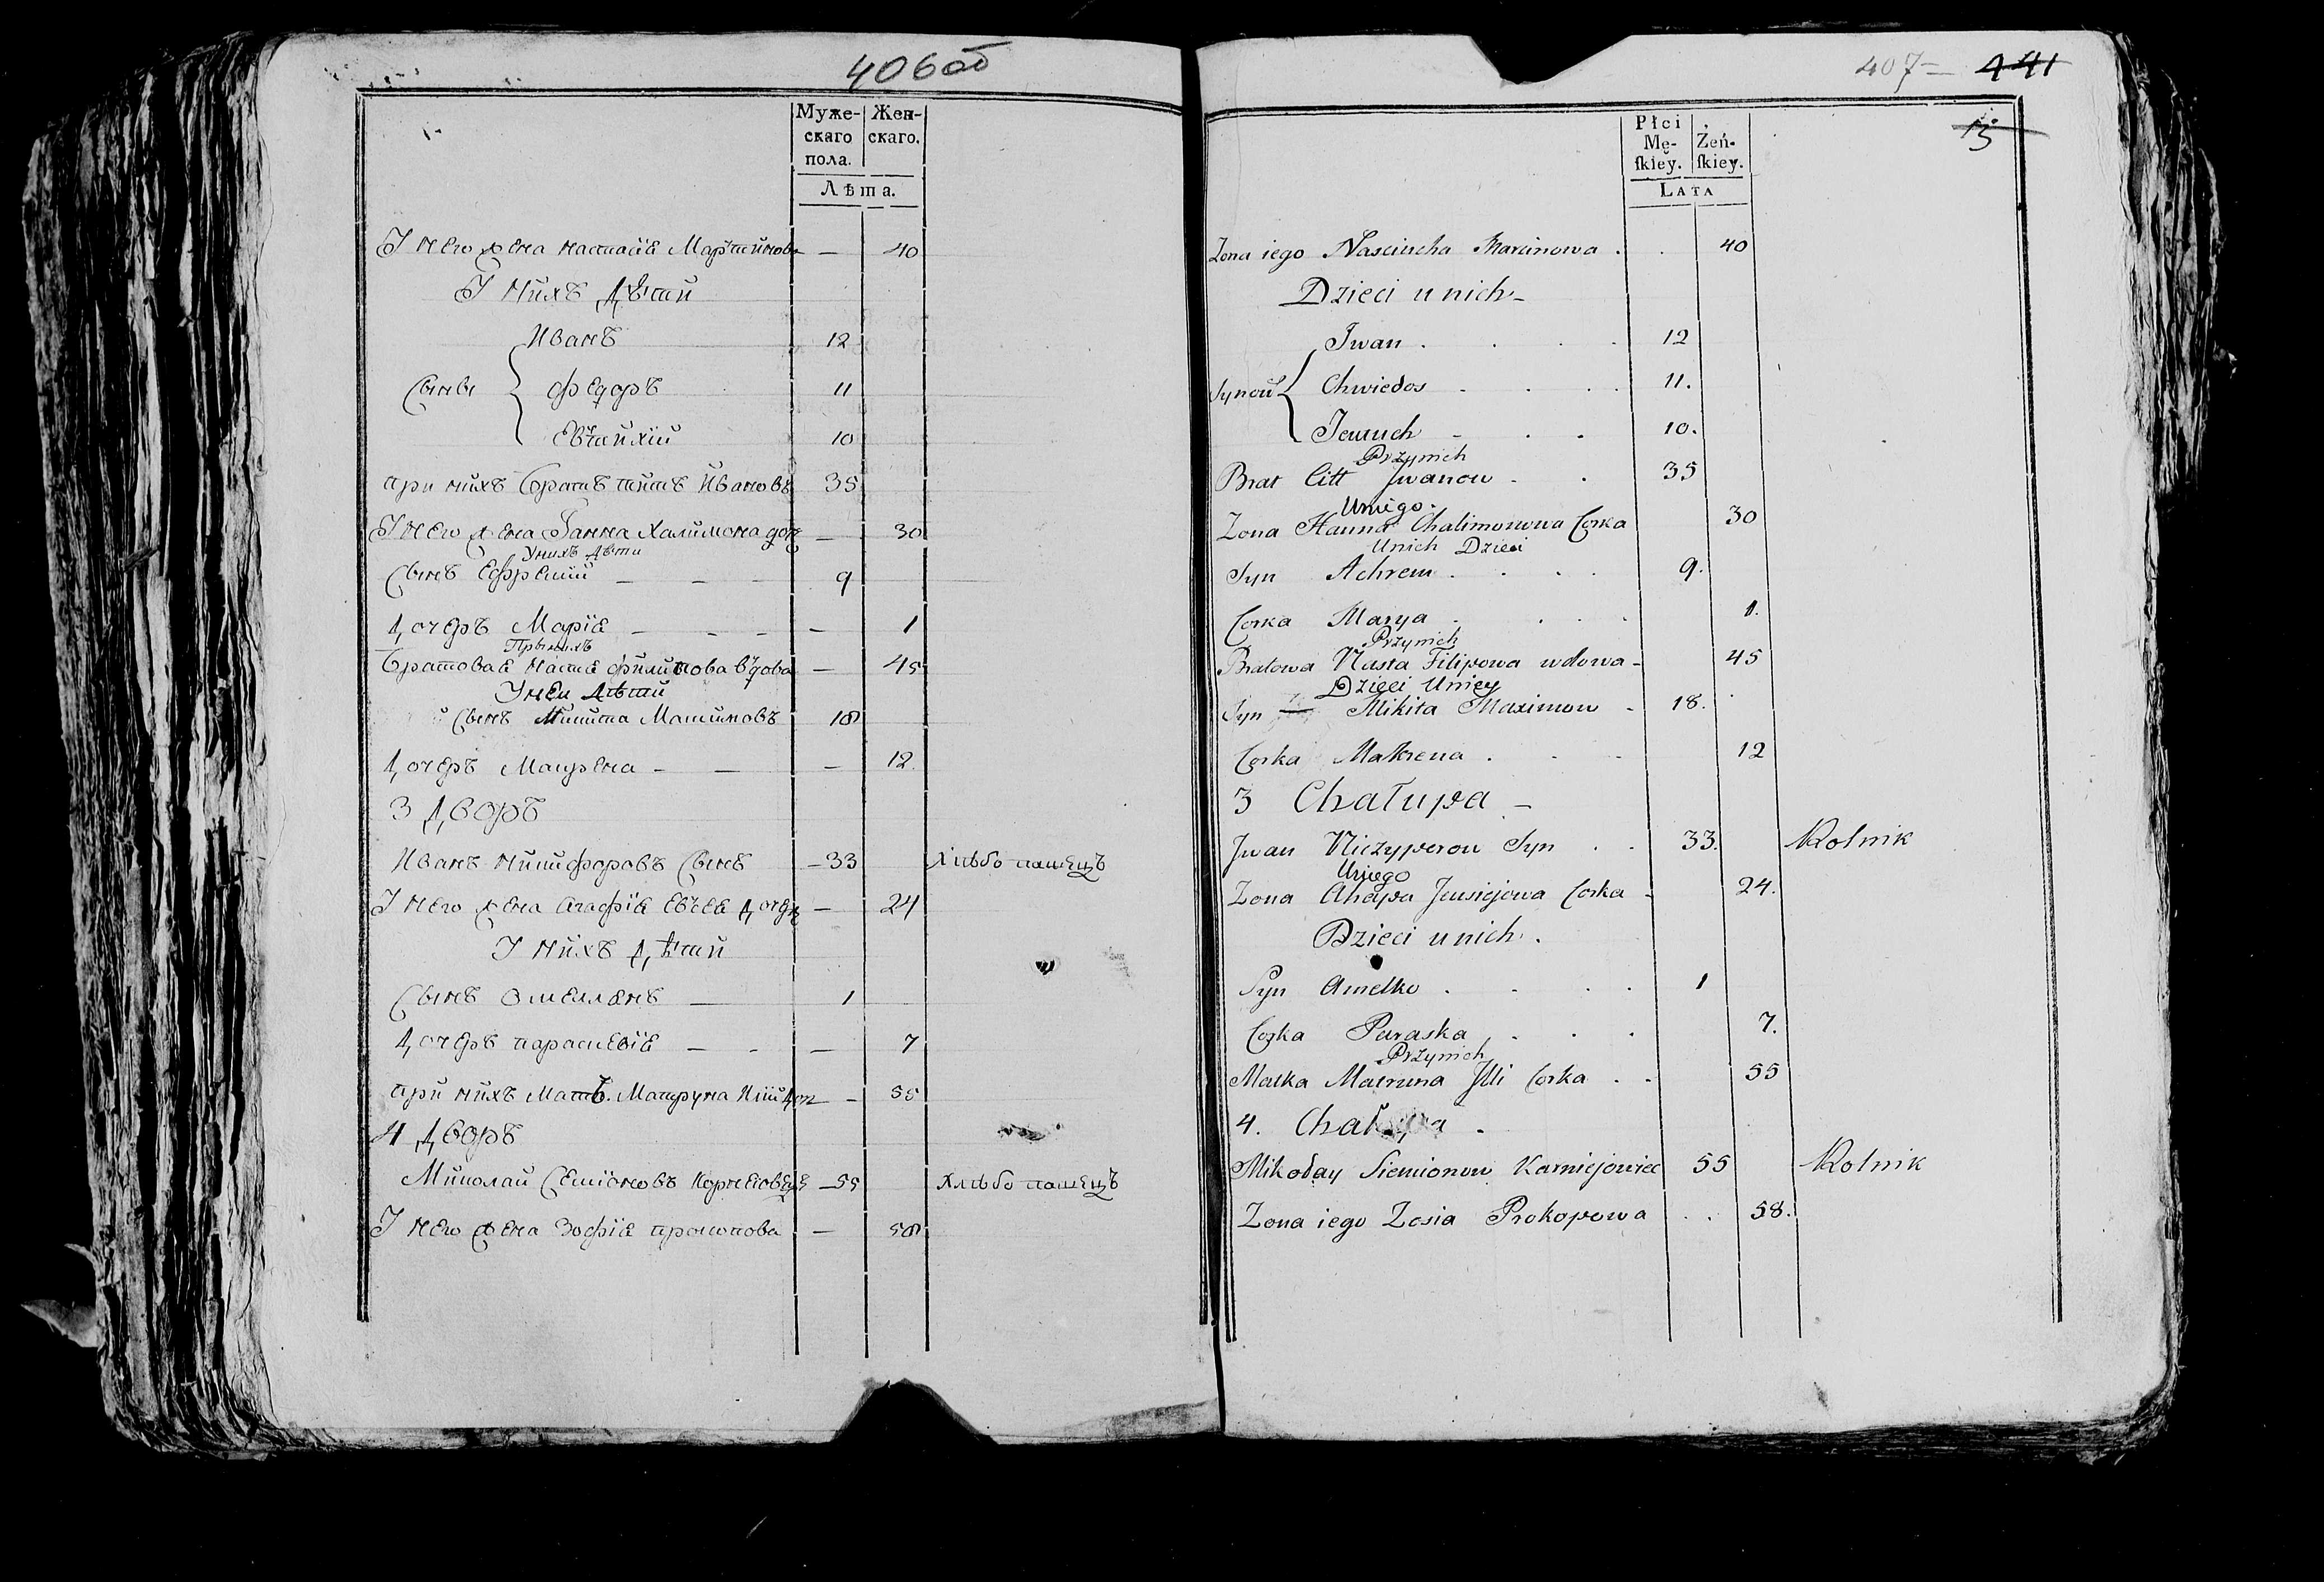 406об
Муже-
скаго
пола.
Жен-
скаго.
Лѣта.
У него жена настасіе Мартинова — 40
У нихъ дѣти
Иванъ 12
Сыны Федоръ 11
Евтихій 10
при нихъ братъ титъ Ивановъ 35
У него жена Ганна Халимона доч — 30
У нихъ дѣти
Сынъ Ефремій — — 9
Дочеръ Маріе — — — — 1
При нихъ
братовае Насте Филипова вдова — 45
У неи дѣти
Сынъ Микита Масимовъ 18
Дочеръ Макрена — — — 12.
3 Дворъ
Иванъ никифоровъ Сынъ —33 хлѣбопашецъ
У него жена Агафіе Евсее дочер — 24
У нихъ дѣти
Сынъ Омелянъ — 1
Дочеръ парасковіе — - — 7
при нихъ Матъ. Матруна Иліи доч — 55
4 Дворъ
Миколай Семіоновъ Корнеевецъ —55 хлѣбопашецъ
У него жена Зофіе прокопова — 58
407 441
13
Płci
Mę-
ſkiey.
Żeń-
ſkiey.
LATA
Zona iego Nasciucha Marcinowa . . 40
Dzieci u nich -
Iwan . . . . 12
Synow Chwiedos . . . 11.
Jewtuch - . . 10.
Przynich
Brat Citt Iwanow - . 35
Uniego.
Zona Hanna Chalimonowa Corka 30
Unich Dzieci
Syn Achrem . . . . 9.
Corka Marya . . . . 1.
Przynich
Bratowa Nasta Filipowa wdowa - 45
Dzieci Uniey
Syn Mikita Maximow - 18.
Corka Makrena . . - 12
3 Chałupa -
Iwan Niczyperow Syn . . 33. Rolnik
Uniego
Zona Ahapa Jewsiejowa Corka - 24.
Dzieci u nich .
Syn Amelko . . . . 1
Corka Paraska . . . 7.
Przynich
Matka Matruna Illi Corka . . 55
4. Chałupa .
Mikołay Siemionow Karniejowiec 55 Rolnik
Zona iego Zosia Prokopowa . . 58.